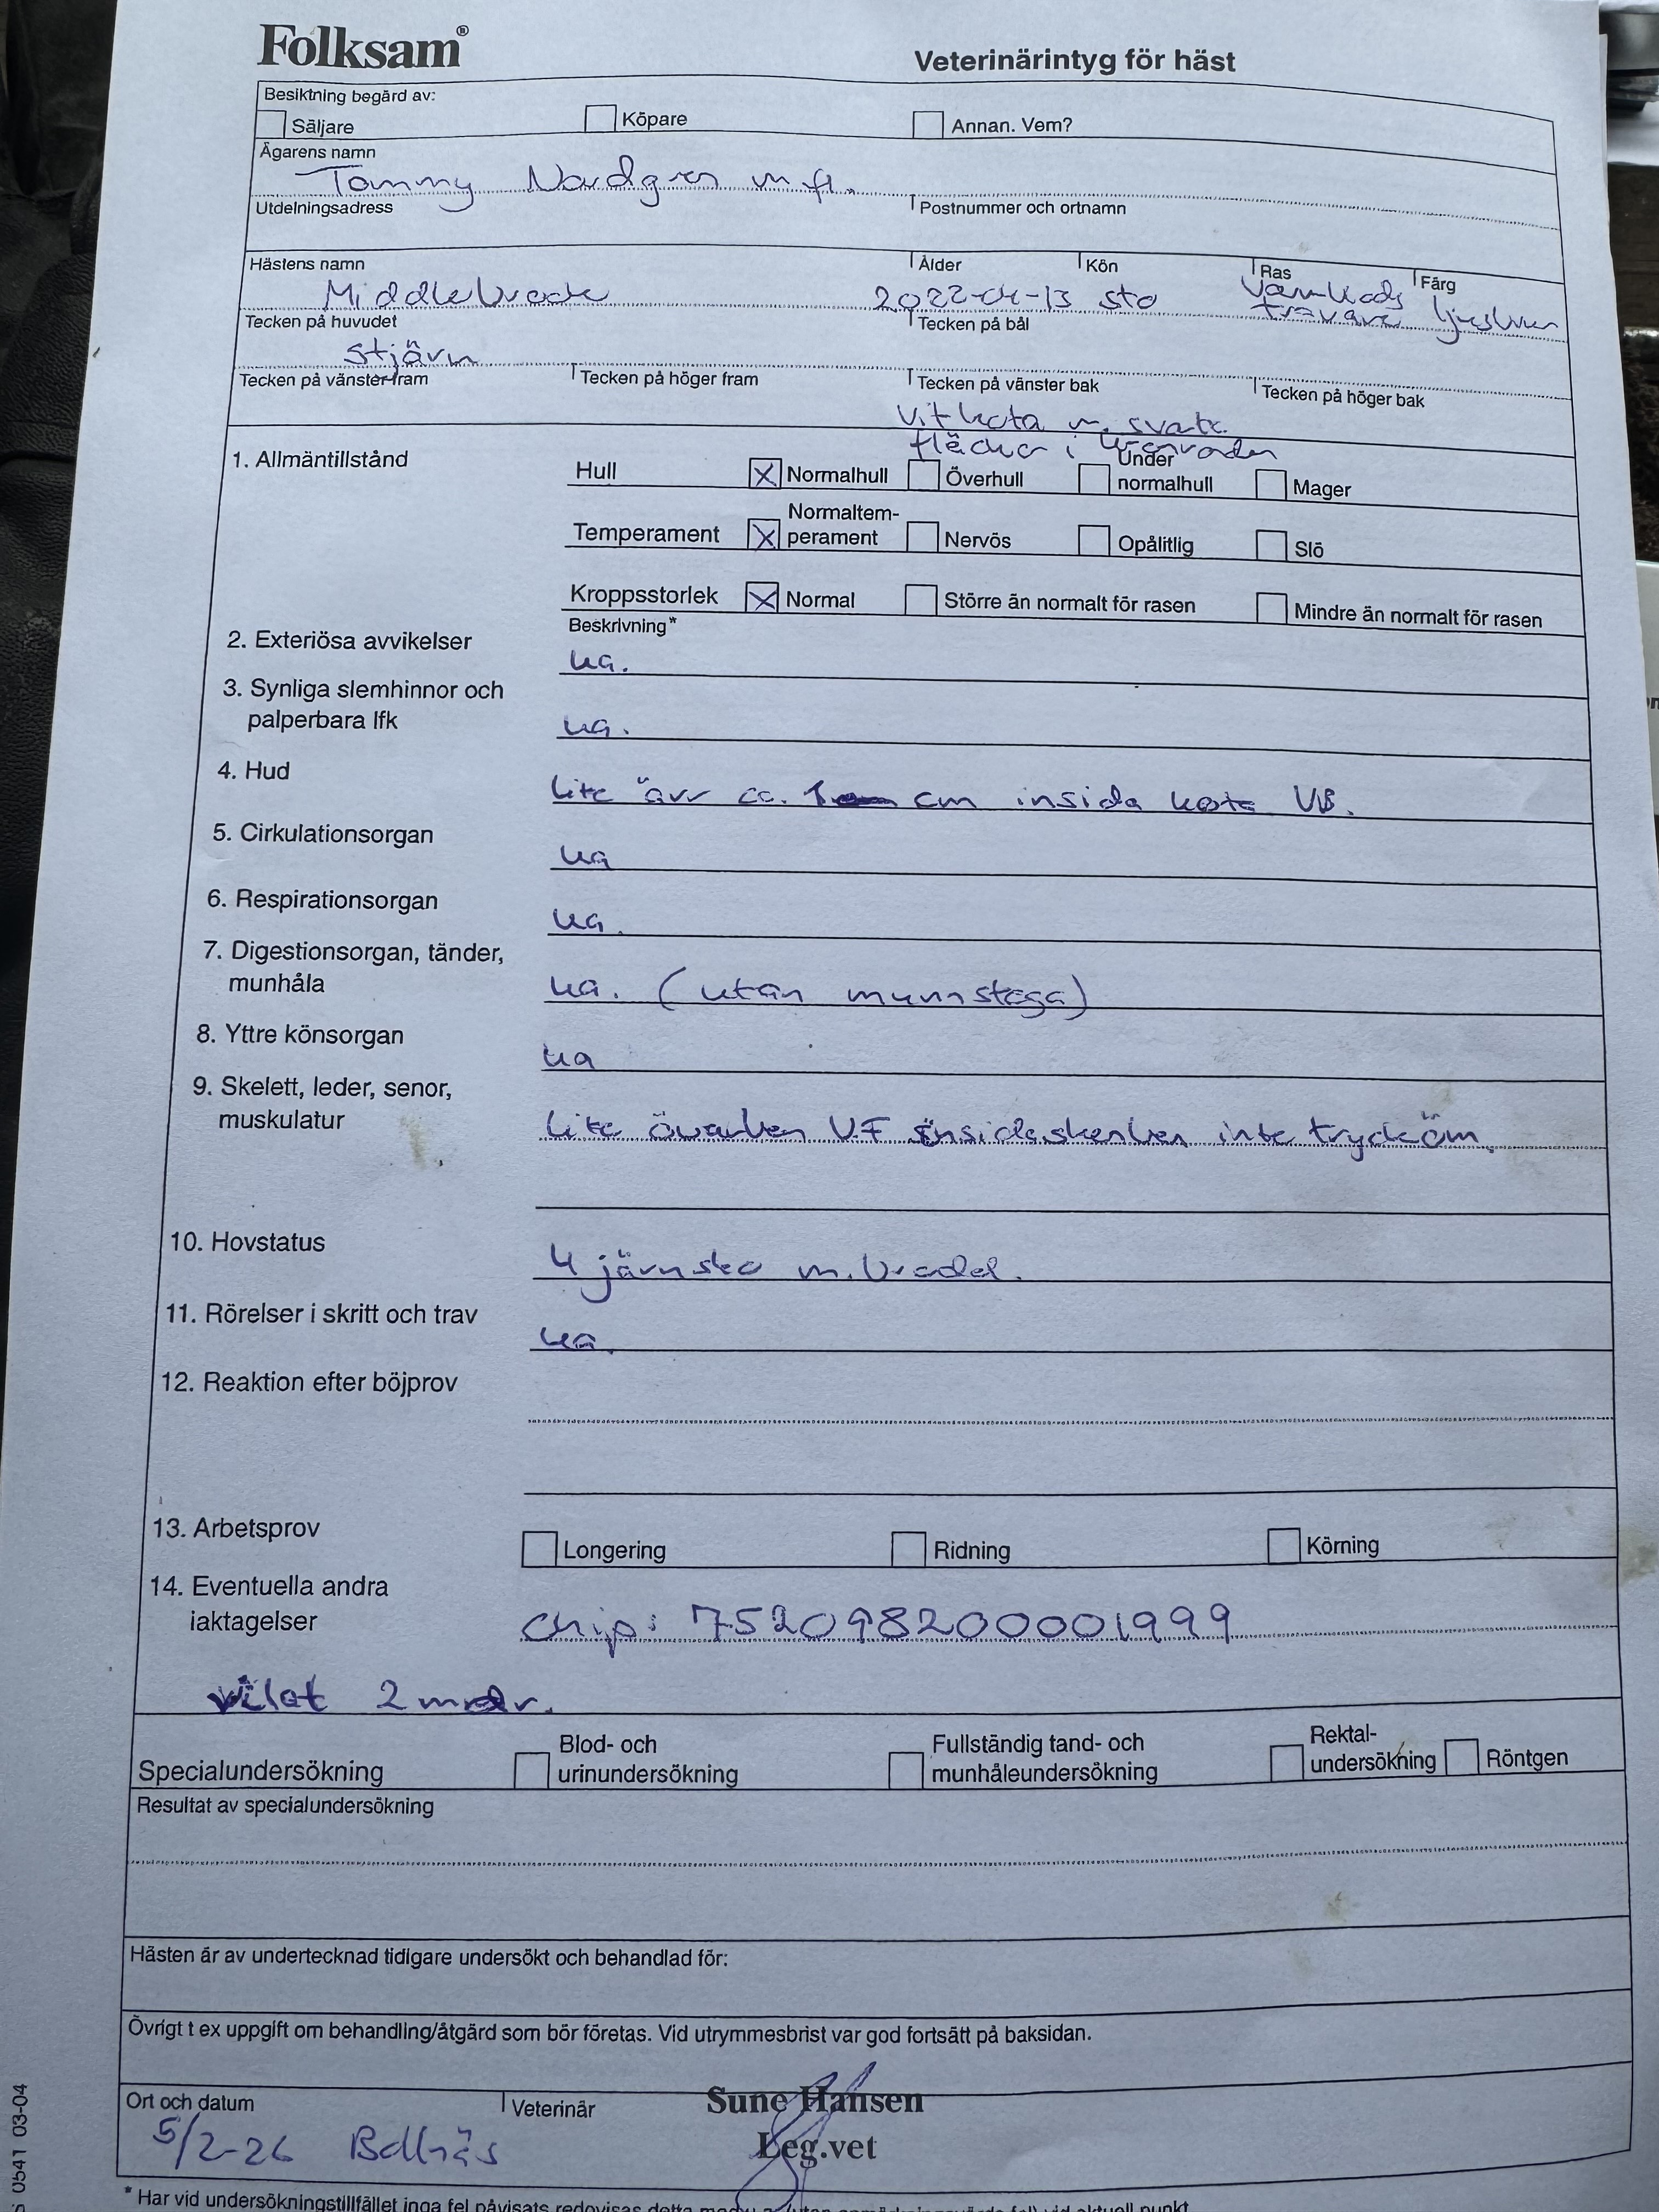 Folksam®
Veterinärintyg för häst
Besiktning begärd av:
Säljare Köpare Annan. Vem?
Ägarens namn
Tommy Nordgren m.fl.
Utdelningsadress Postnummer och ortnamn
Hästens namn Ålder Kön Ras Färg
Middlebrook 2022-04-13 sto Varmblods
travare ljusbrun
Tecken på huvudet Tecken på bål
Stjärn
Tecken på vänster fram Tecken på höger fram Tecken på vänster bak Tecken på höger bak
Vit kota m. svarta
fläckar i kronranden
1. Allmäntillstånd
Hull X Normalhull Överhull Under normalhull Mager
Temperament X Normaltem-
perament Nervös Opålitlig Slö
Kroppsstorlek X Normal Större än normalt för rasen Mindre än normalt för rasen
Beskrivning*
2. Exteriösa avvikelser ua.
3. Synliga slemhinnor och
palperbara lfk ua.
4. Hud Lite ärr ca. cm insida kota VB.
5. Cirkulationsorgan ua
6. Respirationsorgan ua.
7. Digestionsorgan, tänder,
munhåla ua. (utan munstega)
8. Yttre könsorgan ua
9. Skelett, leder, senor,
muskulatur Lite överben V.F insidaskenben inte tryeköm.
10. Hovstatus 4 järnskor m. broddel.
11. Rörelser i skritt och trav ua.
12. Reaktion efter böjprov
13. Arbetsprov Longering Ridning Körning
14. Eventuella andra
iaktagelser Chip: 752098200001999
vilat 2 mdr.
Specialundersökning Blod- och
urinundersökning Fullständig tand- och
munhåleundersökning Rektal-
undersökning Röntgen
Resultat av specialundersökning
Hästen är av undertecknad tidigare undersökt och behandlad för:
Övrigt t ex uppgift om behandling/åtgärd som bör företas. Vid utrymmesbrist var god fortsätt på baksidan.
Ort och datum Veterinär
Sune Hansen
5/2-26 Bollnäs
Leg.vet
S 0541 03-04
* Har vid undersökningstillfället inga fel påvisats redovisas detta med